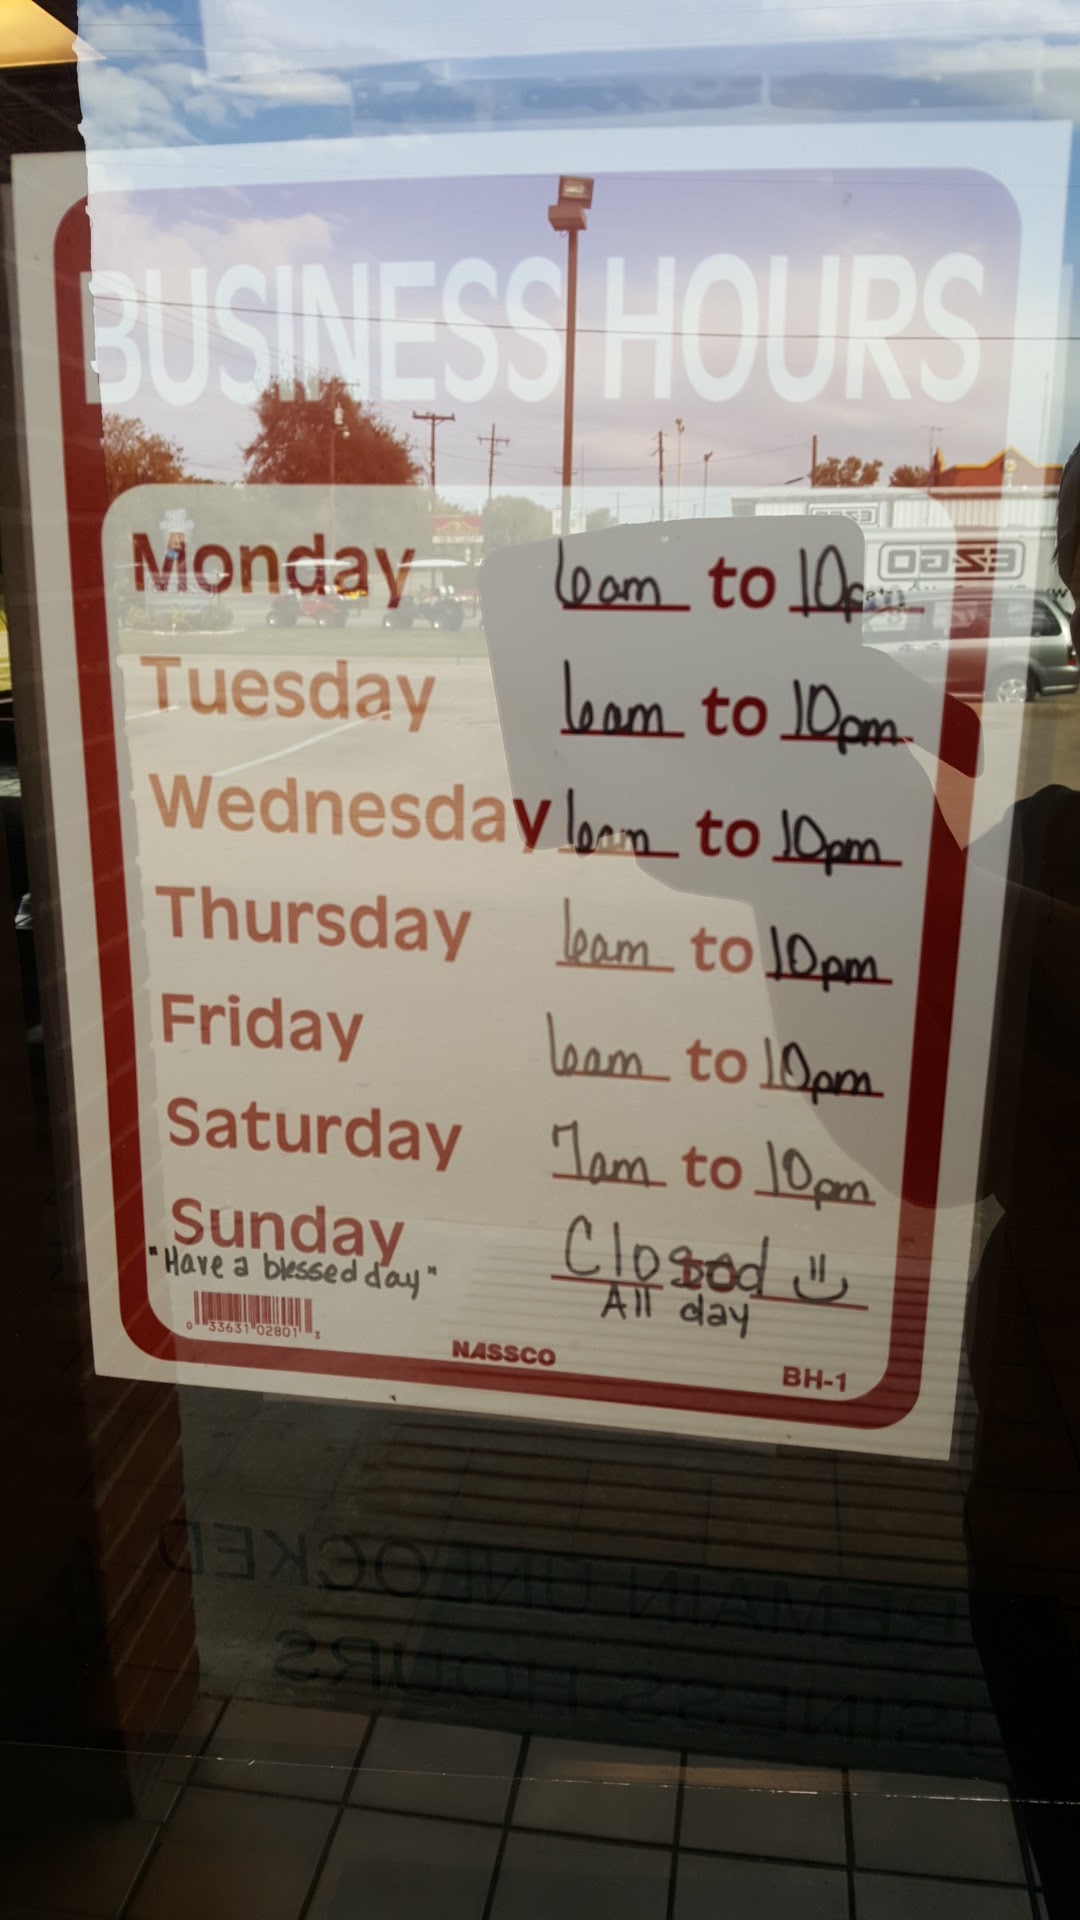 BUSINESS HOURS
Monday 6am to 10p
Tuesday 6am to 10pm
Wednesday 6am to 10pm
Thursday 6am to 10pm
Friday 6am to 10pm
Saturday 7am to 10pm
Sunday Closed
"Have a blessed day" All day
0 33631 02801 3
NASSCO BH-1
EZGO
REMAIN UNLOCKED
BUSINESS HOURS